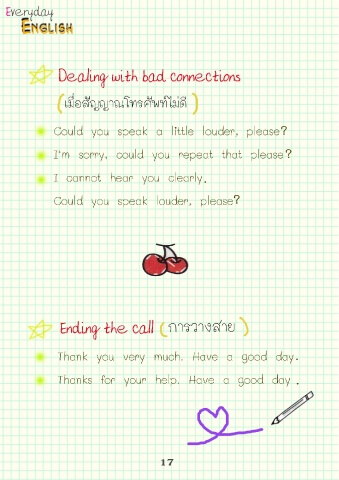 Everyday
ENGLISH
Dealing with bad connections
(เมื่อสัญญาณโทรศัพท์ไม่ดี)
Could you speak a little louder, please?
I'm sorry, could you repeat that please?
I cannot hear you clearly.
Could you speak louder, please?
Ending the call (การวางสาย)
Thank you very much. Have a good day.
Thanks for your help. Have a good day.
17